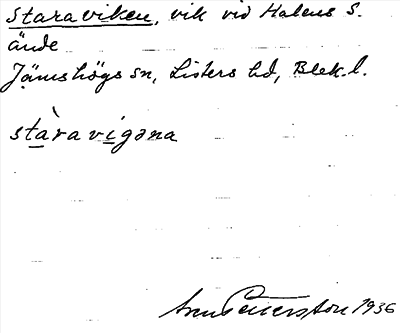 Staraviken, vik vid Halens S.
ände
Jämshögs sn, Listers hd, Blek. l.
stàravigəna
Pettersson 1936